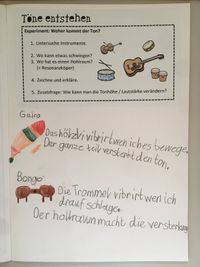 Töne entstehen
Experiment: Woher kommt der Ton?
1. Untersuche Instrumente.
2. Wo kann etwas schwingen?
3. Wo hat es einen Hohlraum?
(= Resonanzkörper)
4. Zeichne und erkläre.
5. Zusatzfrage: Wie kann man die Tonhöhe / Lautstärke verändern?
Guiro
Das hölzln vibrirt wen ich es bewege.
Der ganze teil verstärkt den ton.
Bongo
Die Trommel vibrirt wen ich
drauf schlage.
Der holraum macht die verstärkung